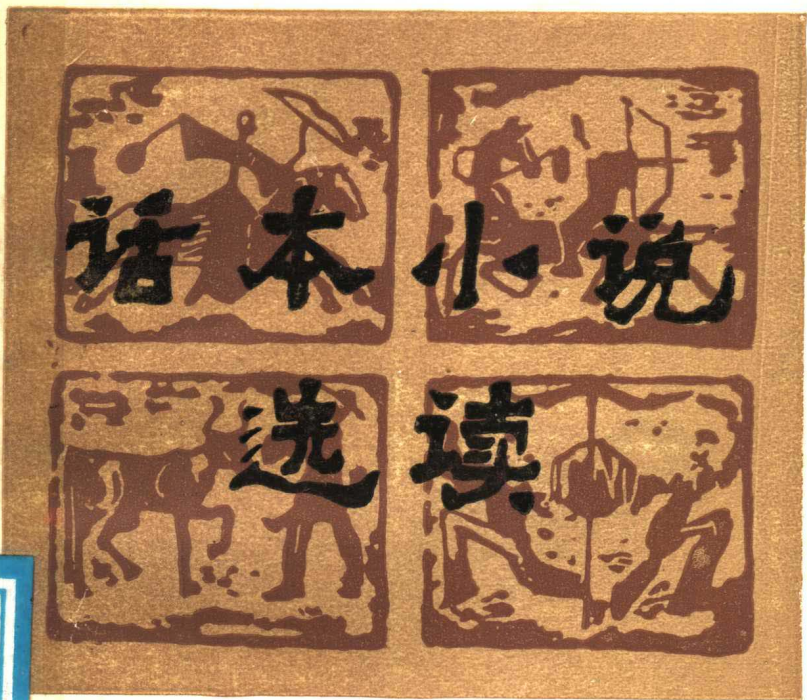 话本小说
选读